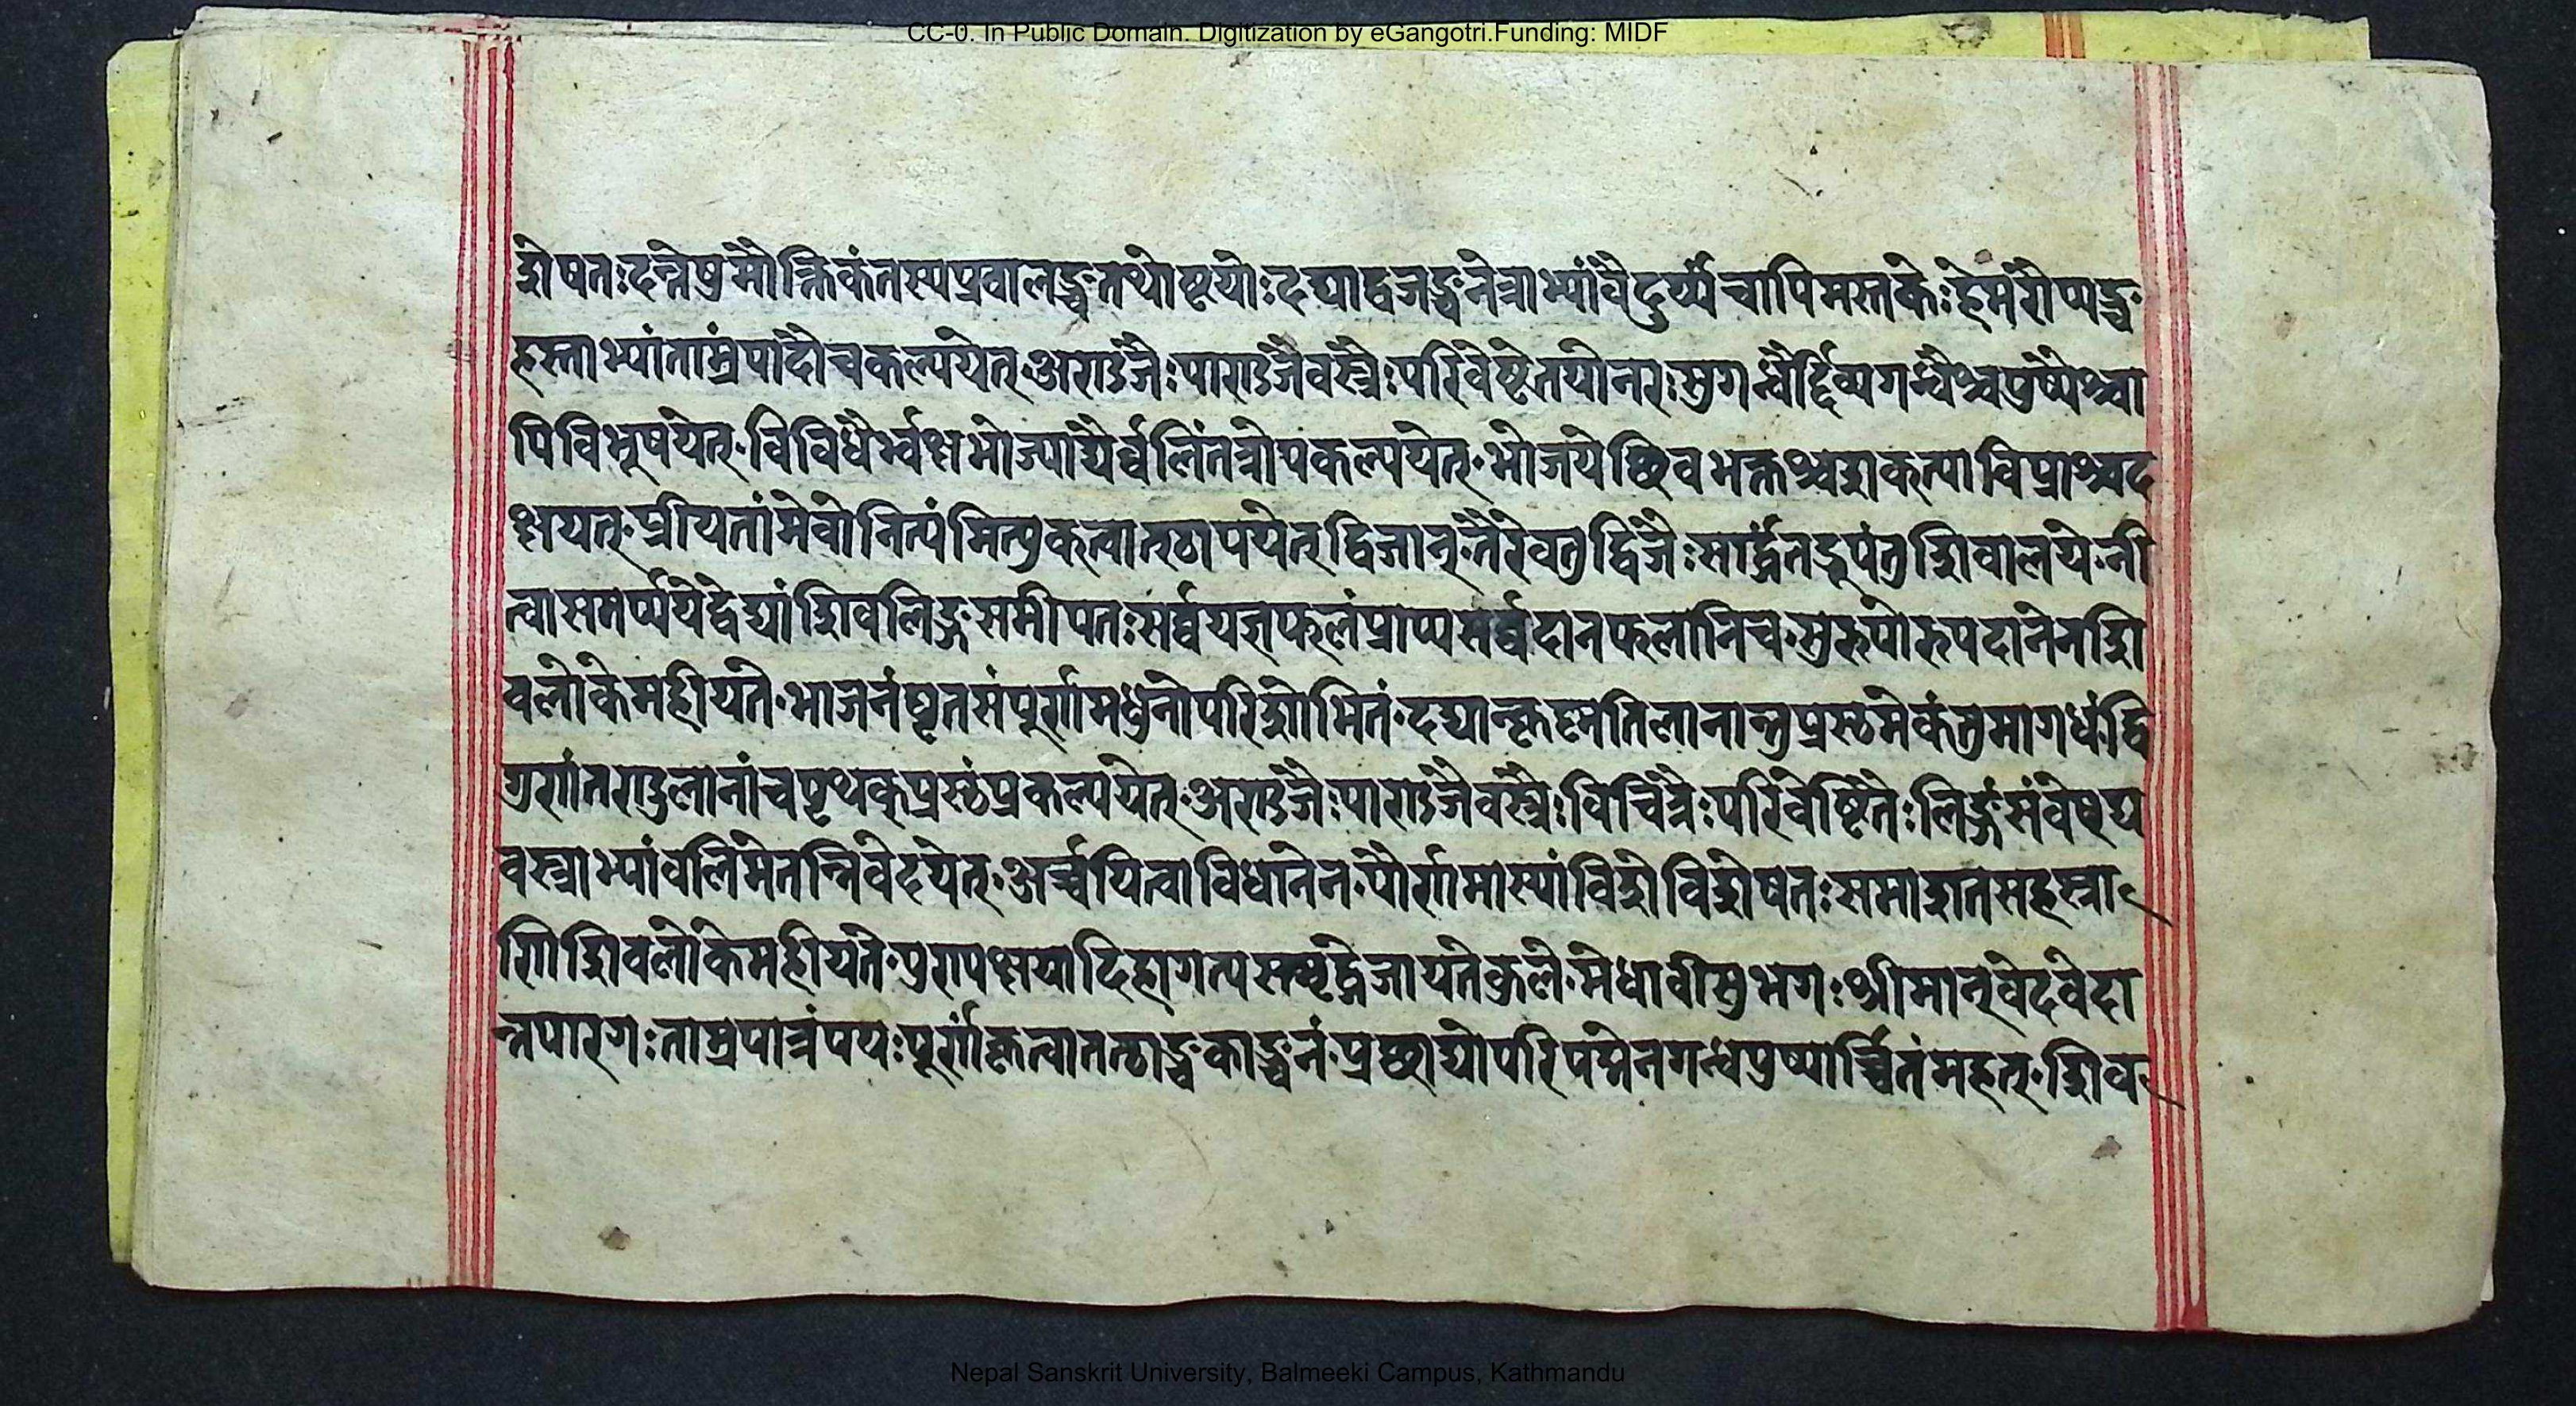 CC-0. In Public Domain. Digitization by eGangotri.Funding: MIDF
शेषतःदन्तेषुमौक्तिकंतस्यप्रवालञ्चतथोष्टयोःदद्याद्वजञ्चनेत्राभ्यांवैदुर्य्यंचापिमस्तकेःहेमंरौप्यञ्च
हस्ताभ्यांताम्रंपादौचकल्पयेत्॰अण्डजैःपाण्डजैवस्त्रैःपरिवेष्टेतयोनरःसुगन्धैर्द्दिव्यगन्धैश्चपुष्पैश्चा
पिविभूषयेत्॰विविधैर्भ्वक्षभोज्याद्यैर्व्वलिंतत्रोपकल्पयेत्॰भोजयेच्छिवभक्तश्चशक्त्याविप्राश्चद
क्षयत्॰प्रीयतांमेवोनित्यंमित्युक्त्वात्स्थापयेत्द्विजान्॰तैरेवतुद्विजैःसार्द्धंतद्रूपंतुशिवालये॰नी
त्वासमर्प्पयेद्वेद्यांशिवलिङ्गसमीपतःसर्व्वयज्ञफलंप्राप्यसर्व्वदानफलानिच॰सुरुपोरुपदानेनशि
वलोकेमहीयते॰भाजनंघृतसंपूर्णामधुनोपरिशोभितं॰दद्यात्कृष्णतिलानान्तुप्रस्थमेकंतुमागधं॰द्वि
गुणंतण्डुलानांचपृथक्प्रस्थंप्रकल्पयेत्॰अण्डजैःपाण्डजैवस्त्रैःविचित्रैःपरिवेष्टितैःलिङ्गंसंवेष्ट्य
वस्त्राभ्यांवलिमेतन्निवेदयेत्॰अर्च्चयित्वाविधानेन॰पौर्णामास्यांविशेविशेषतःसमाशतसहस्रा
णिशिवलोकेमहीयते॰पुण्यक्षयादिहागत्यसमृद्धेजायतेकुले॰मेधावीसुभगःश्रीमान्वेदवेदा
न्तपारगःताम्रपात्रंपयःपूर्णंकृत्वातत्स्थाञ्चकाञ्चनं॰प्रच्छाद्योपरिपद्मेनगन्धपुष्पार्च्चितंमहत्॰शिव
Nepal Sanskrit University, Balmeeki Campus, Kathmandu